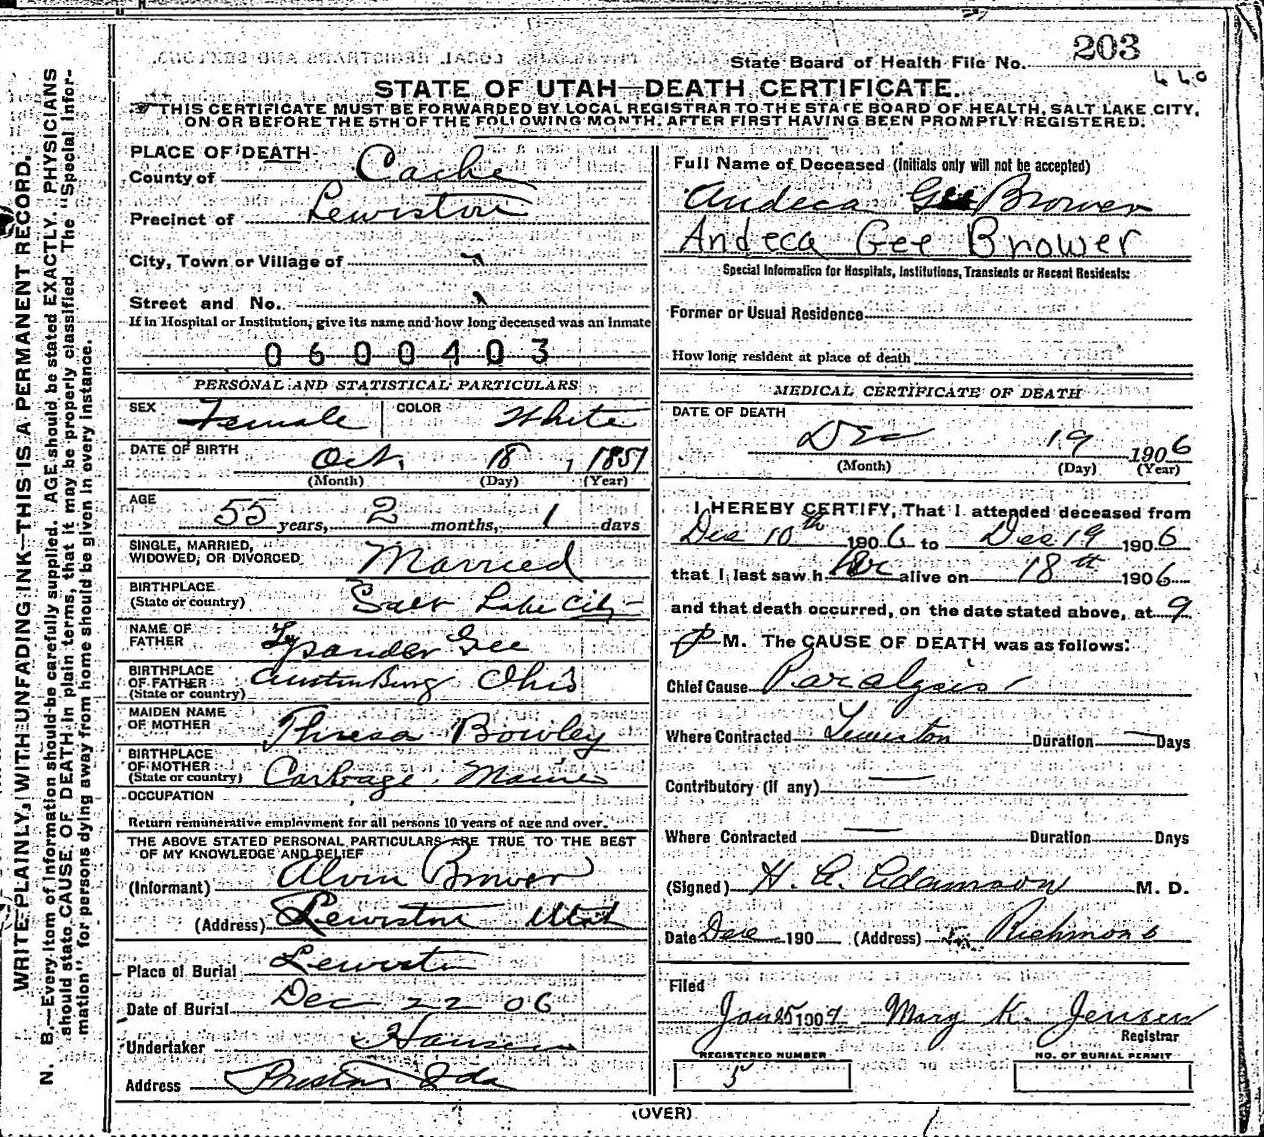 State Board of Health File No. 203
440
STATE OF UTAH—DEATH CERTIFICATE.
THIS CERTIFICATE MUST BE FORWARDED BY LOCAL REGISTRAR TO THE STATE BOARD OF HEALTH, SALT LAKE CITY,
ON OR BEFORE THE 5TH OF THE FOLLOWING MONTH, AFTER FIRST HAVING BEEN PROMPTLY REGISTERED.
WRITE PLAINLY, WITH UNFADING INK—THIS IS A PERMANENT RECORD.
N. B.—Every item of information should be carefully supplied. AGE should be stated EXACTLY. PHYSICIANS
should state CAUSE OF DEATH in plain terms, that it may be properly classified. The "Special Infor-
mation" for persons dying away from home should be given in every instance.
PLACE OF DEATH
County of Cache
Precinct of Lewiston
City, Town or Village of "
Street and No. "
If in Hospital or Institution, give its name and how long deceased was an inmate
0600403
PERSONAL AND STATISTICAL PARTICULARS
SEX Female COLOR White
DATE OF BIRTH Oct. 18, 1851
(Month) (Day) (Year)
AGE
55 years, 2 months, 1 days
SINGLE, MARRIED,
WIDOWED, OR DIVORCED Married
BIRTHPLACE
(State or country) Salt Lake City
NAME OF
FATHER Lysander Gee
BIRTHPLACE
OF FATHER
(State or country) Austinburg Ohio
MAIDEN NAME
OF MOTHER Thresa Bowley
BIRTHPLACE
OF MOTHER
(State or country) Carthage, Maine
OCCUPATION
Return remunerative employment for all persons 10 years of age and over.
THE ABOVE STATED PERSONAL PARTICULARS ARE TRUE TO THE BEST
OF MY KNOWLEDGE AND BELIEF
(Informant) Alvin Brower
(Address) Lewiston Utah
Place of Burial Lewiston
Date of Burial Dec 22 06
Undertaker Hansen
Address Preston Ida
Full Name of Deceased (Initials only will not be accepted)
Andeca Gee Brower
Andeca Gee Brower
Special Information for Hospitals, Institutions, Transients or Recent Residents:
Former or Usual Residence
How long resident at place of death
MEDICAL CERTIFICATE OF DEATH
DATE OF DEATH
Dec 19 1906
(Month) (Day) (Year)
I HEREBY CERTIFY, That I attended deceased from
Dec 10th 1906 to Dec 19 1906
that I last saw her alive on 18th 1906
and that death occurred, on the date stated above, at 9
P M. The CAUSE OF DEATH was as follows:
Chief Cause Paralysis
Where Contracted Lewiston Duration — Days
Contributory (if any) —
Where Contracted — Duration Days
(Signed) H. A. Adamson M. D.
Date Dec 190 (Address) Richmond
Filed
Jan 25 1907 Mary K. Jensen
Registrar
REGISTERED NUMBER
5
NO. OF BURIAL PERMIT
(OVER)